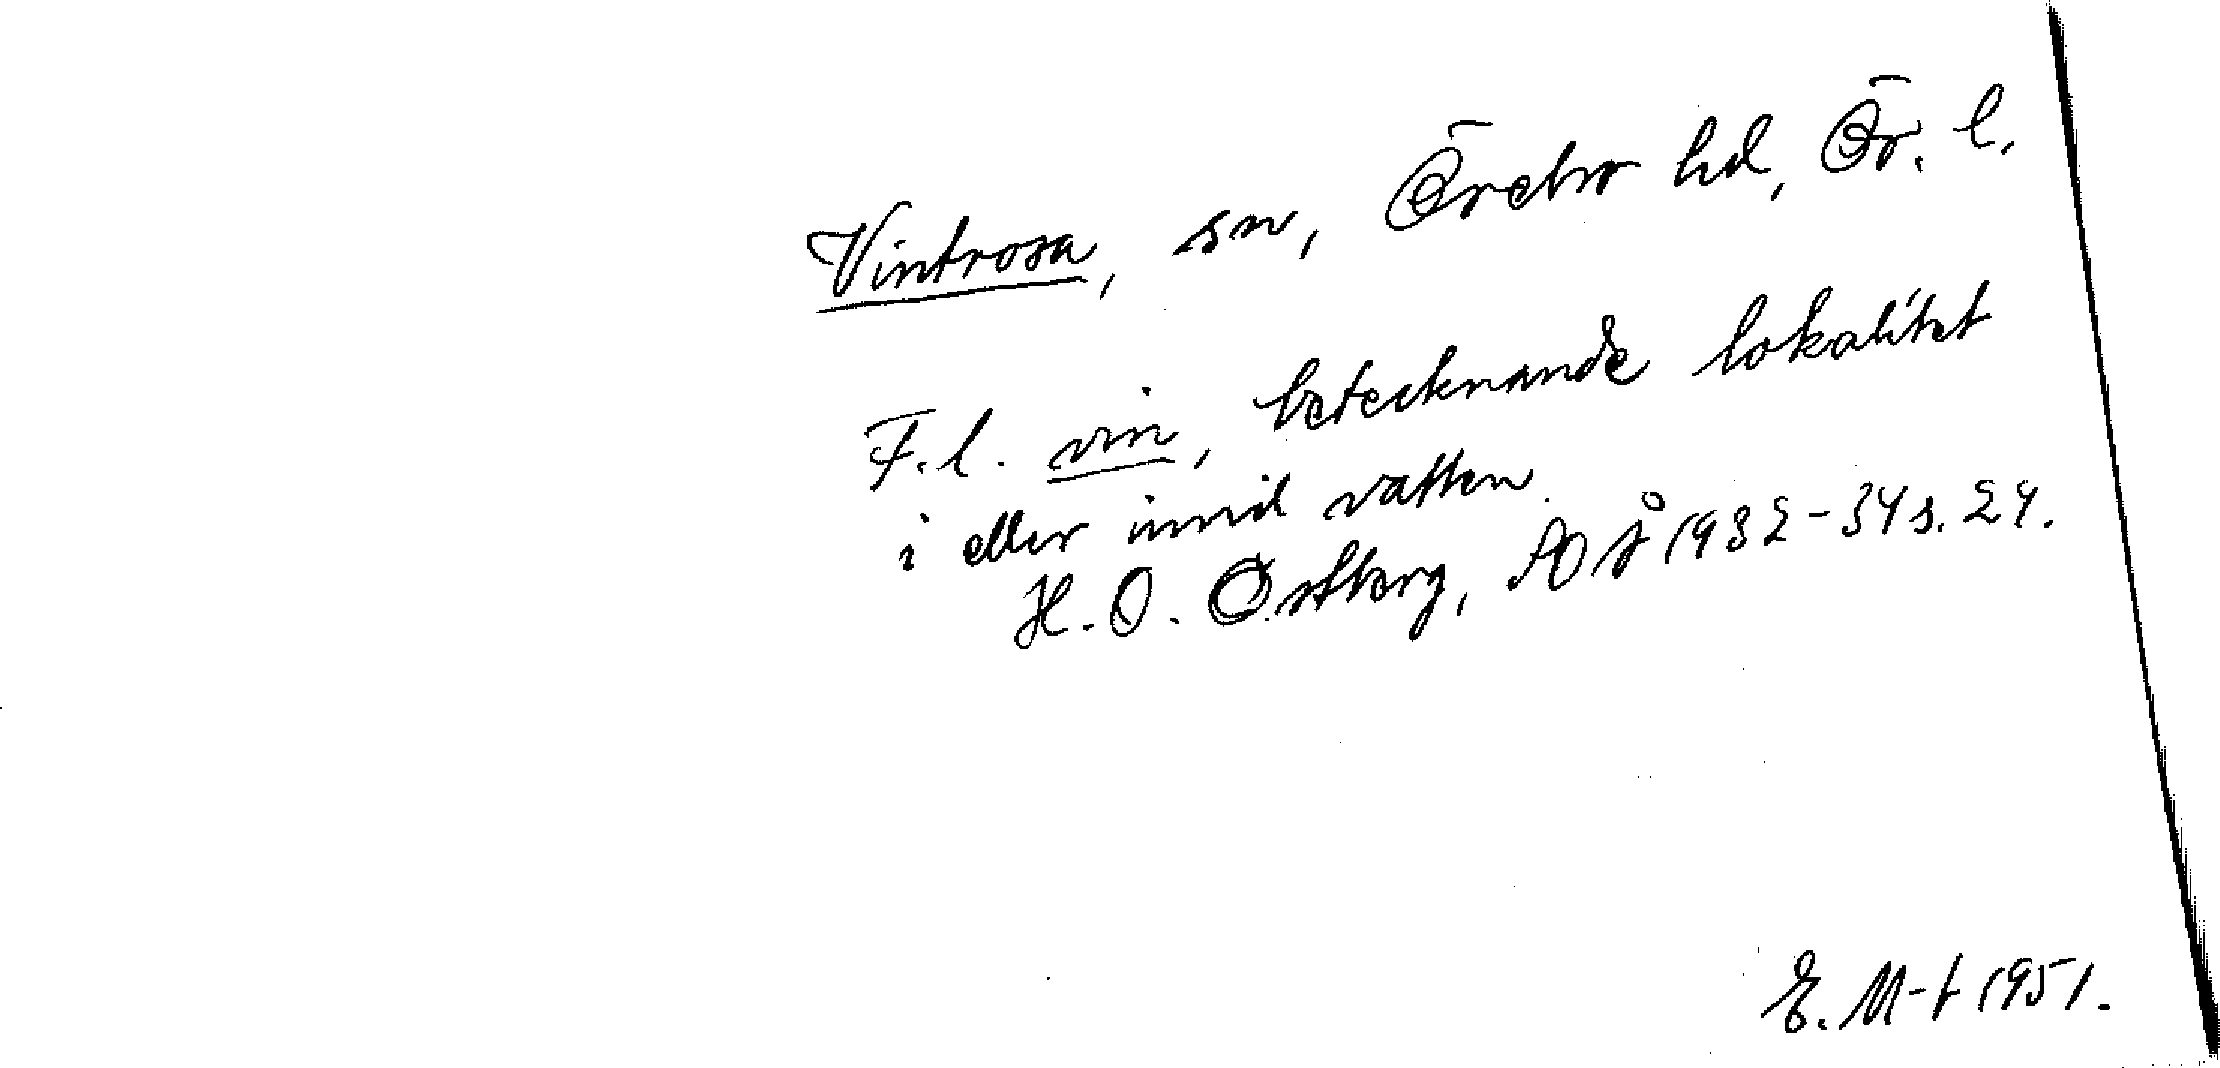 Vintrosa, sn, Örebro hd, Ör. l.
F.l. vin, betecknande lokalitet
i eller invid vatten.
H. O. Östberg, NoB 1932-34 s. 24.
E. M-t 1951.